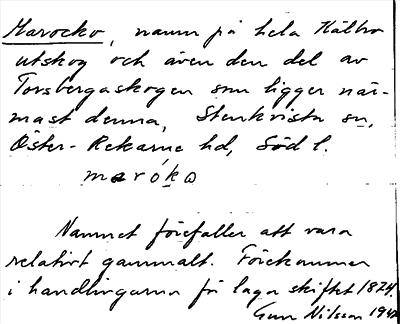 Marocko, namn på hela Hälbo
utskog och även den del av
Torsbergaskogen som ligger när-
mast denna, Stenkvista sn,
Öster-Rekarne hd, Söd l.
maróka
Namnet förefaller att vara
relativt gammalt. Förekommer
i handlingarna på laga skiftet 1824.
Gun Nilsson